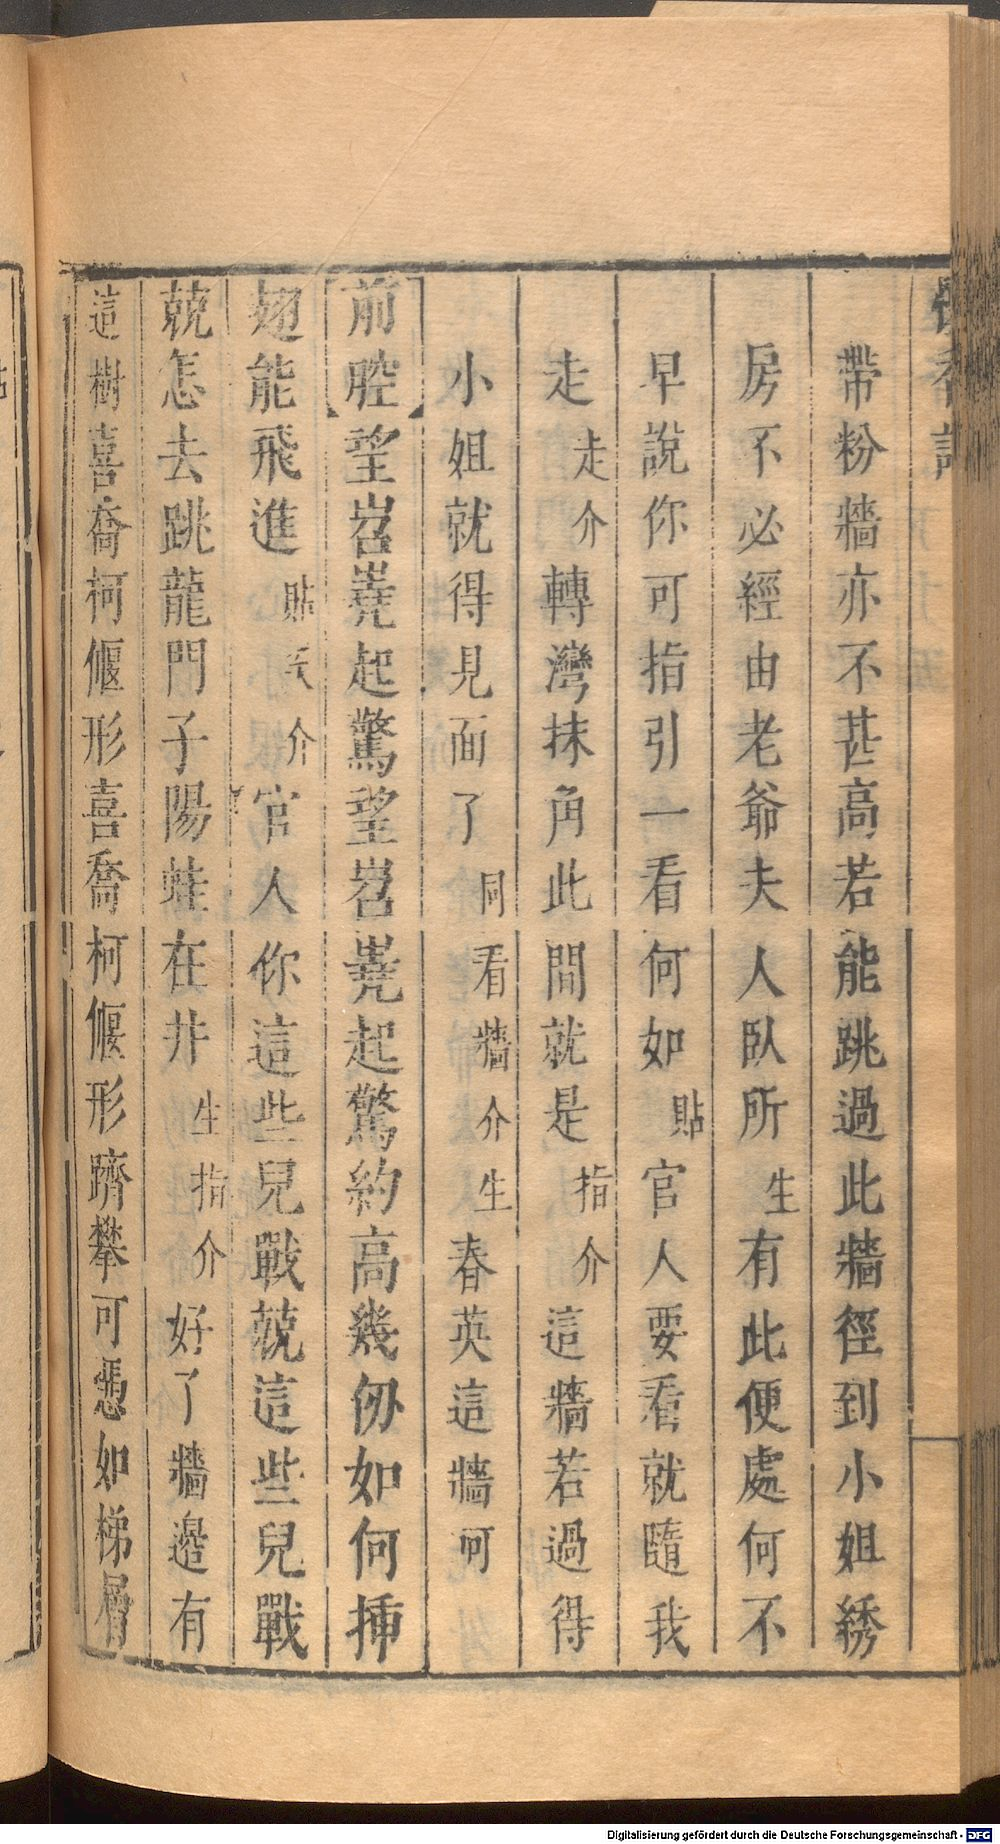 帶粉牆亦不甚高若能跳過此牆徑到小姐綉
房不必經由老爺夫人臥所生有此便處何不
早說你可指引一看何如貼官人要看就隨我
走走介轉灣抹角此間就是指介這牆若過得
小姐就得見面了同看牆介生春英這牆呵
前腔望岧嶤起驚望岧嶤起驚約高幾仞如何揷
翅能飛進貼介官人你這些兒戰兢這些兒戰
兢怎去跳龍門子陽蛙在井生指介好了牆邉有
這樹喜喬柯偃形喜喬柯偃形躋攀可慿如梯層
Digitalisierung gefördert durch die Deutsche Forschungsgemeinschaft - DFG